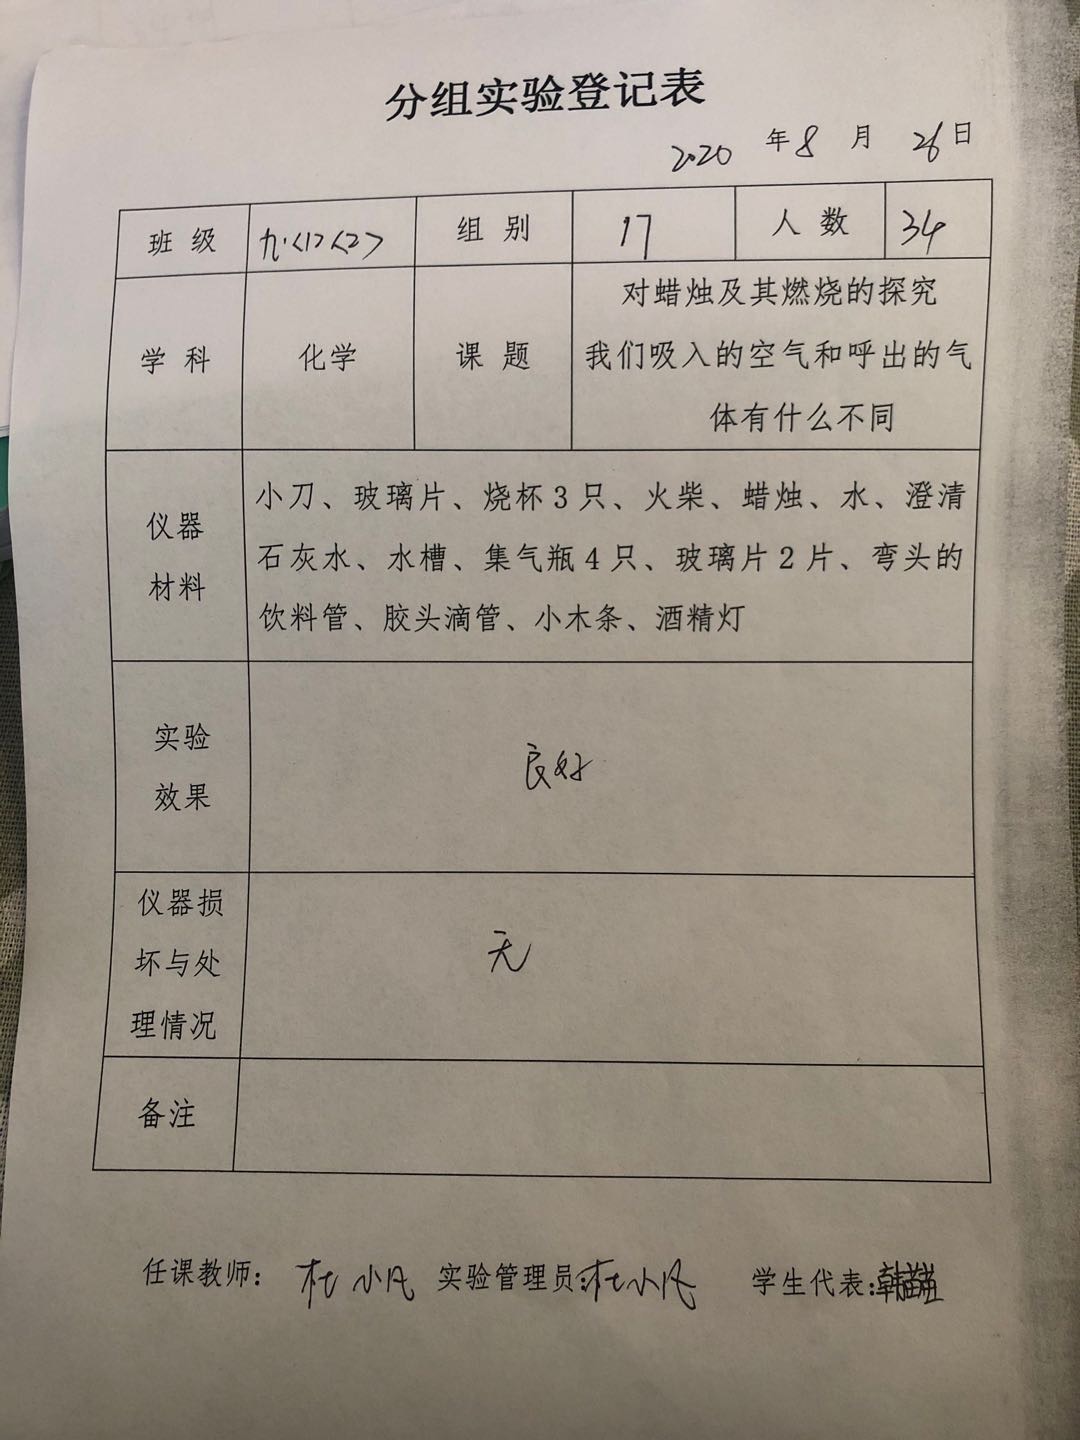 分组实验登记表
2020 年 8 月 26 日
班级 九.<1><2> 组别 17 人数 34
学科 化学 课题 对蜡烛及其燃烧的探究
我们吸入的空气和呼出的气
体有什么不同
仪器
材料
小刀、玻璃片、烧杯3只、火柴、蜡烛、水、澄清
石灰水、水槽、集气瓶4只、玻璃片2片、弯头的
饮料管、胶头滴管、小木条、酒精灯
实验
效果
良好
仪器损
坏与处
理情况
无
备注
任课教师： 杜小凡 实验管理员：杜小凡 学生代表：韩